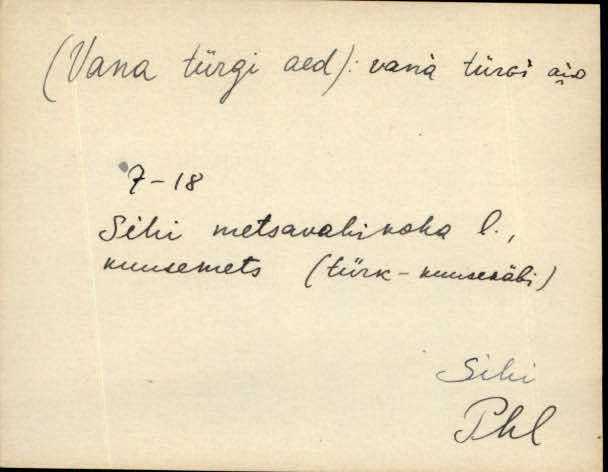 (Vana türgi aed): vana türGi aiɒ
7-18
Sihi metsavahikoha l.,
kuusemets (türk-kuusekäbi)
Sihi
Phl